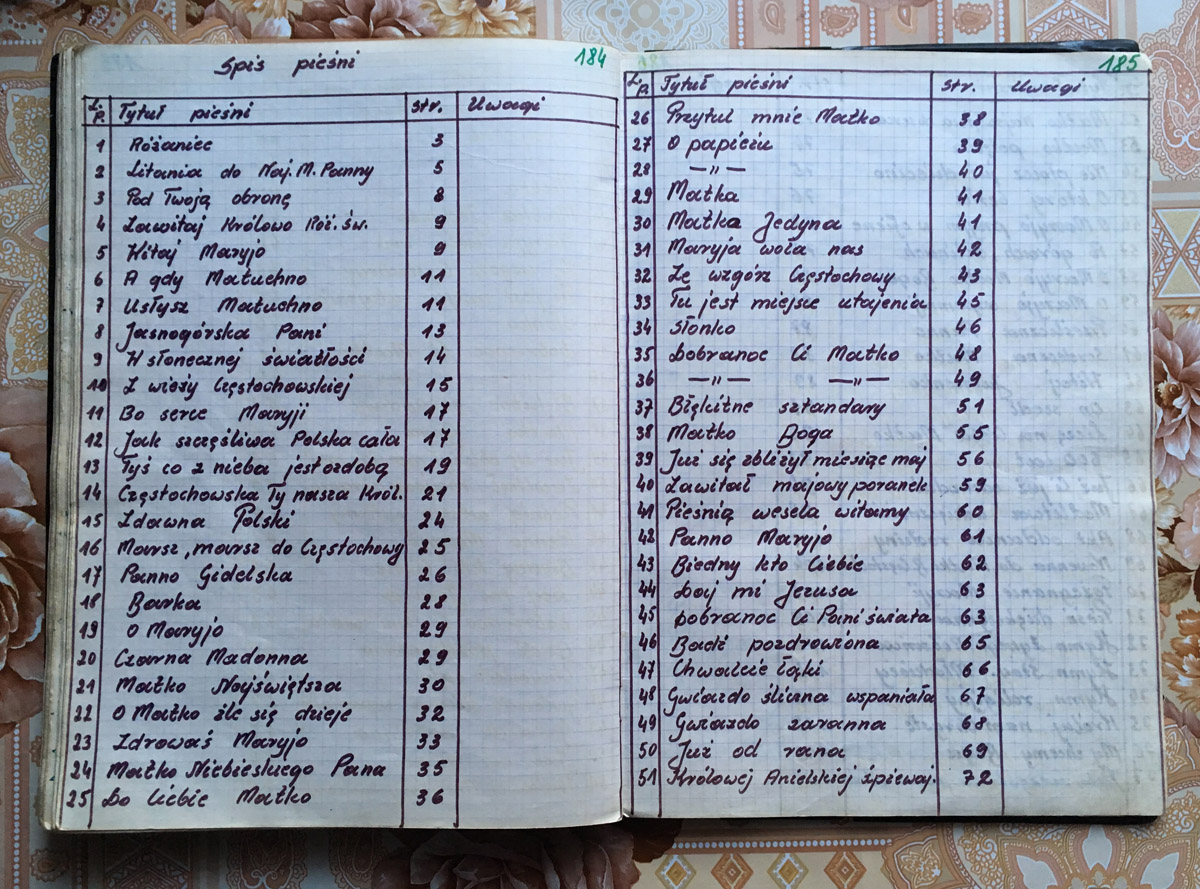 Spis pieśni 184
L.p. Tytuł pieśni Str. Uwagi
1 Różaniec 3
2 Litania do Naj. M. Panny 5
3 Pod Twoją obronę 8
4 Zawitaj Królowo Róż. Św. 9
5 Witaj Maryjo 9
6 A gdy Matuchno 11
7 Usłysz Matuchno 11
8 Jasnogórska Pani 13
9 W słonecznej światłości 14
10 Z wieży Częstochowskiej 15
11 Bo serce Maryji 17
12 Jak szczęśliwa Polska cała 17
13 Tyś co z nieba jest ozdobą 19
14 Częstochowska Ty nasza Król. 21
15 Zdawna Polski 24
16 Marsz, marsz do Częstochowy 25
17 Panno Gidelska 26
18 Barka 28
19 O Maryjo 29
20 Czarna Madonna 29
21 Matko Najświętsza 30
22 O Matko źle się dzieje 32
23 Zdrowaś Maryjo 33
24 Matko Niebieskiego Pana 35
25 Do Ciebie Matko 36
185
L.p. Tytuł pieśni Str. Uwagi
26 Przytul mnie Matko 38
27 O papieżu 39
28 —"— 40
29 Matka 41
30 Matka Jedyna 41
31 Maryja woła nas 42
32 Ze wzgórz Częstochowy 43
33 Tu jest miejsce utajenia 45
34 Słonko 46
35 Dobranoc Ci Matko 48
36 —"— —"— 49
37 Błękitne sztandary 51
38 Matko Boga 55
39 Już się zbliżył miesiąc maj 56
40 Zawitał majowy poranek 59
41 Pieśnią wesela witamy 60
42 Panno Maryjo 61
43 Biedny kto Ciebie 62
44 Daj mi Jezusa 63
45 Dobranoc Ci Pani świata 63
46 Bądź pozdrowiona 65
47 Chwalcie łąki 66
48 Gwiazdo śliczna wspaniała 67
49 Gwiazdo zaranna 68
50 Już od rana 69
51 Królowej Anielskiej śpiewaj. 72